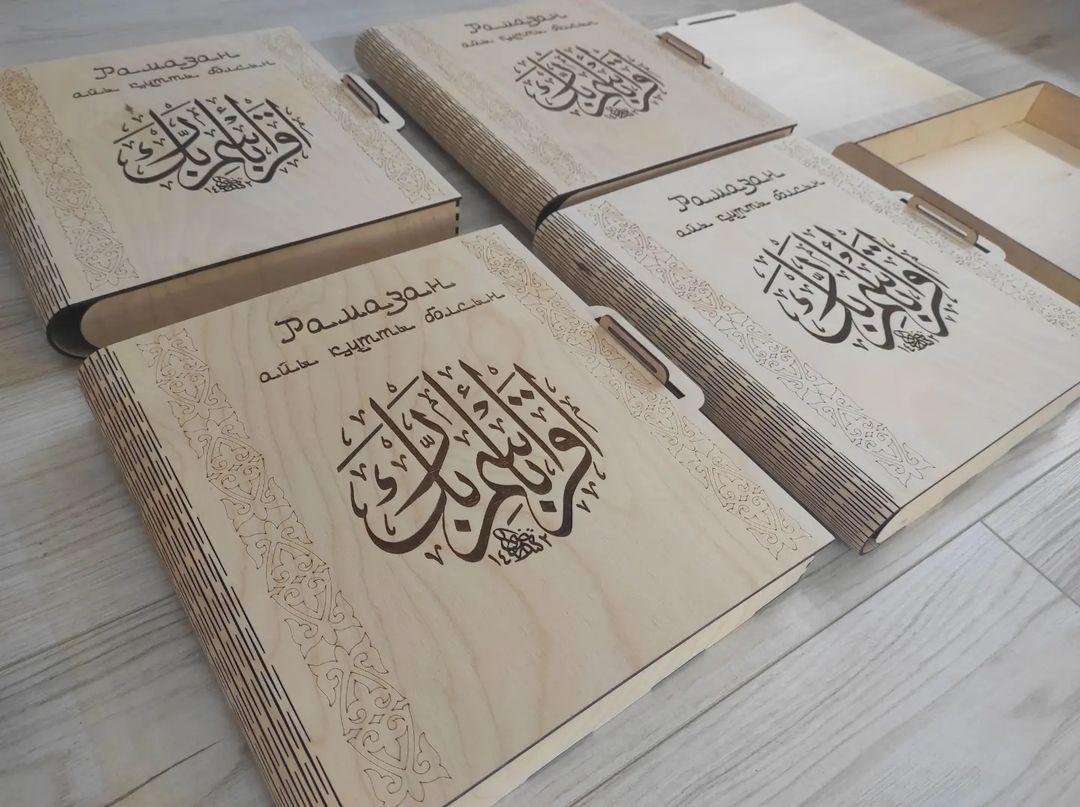 Рамазан
айы құтты болсын
اقرأ باسم ربك
Рамазан
айы құтты болсын
اقرأ باسم ربك
Рамазан
айы құтты болсын
اقرأ باسم ربك
Рамазан
айы құтты болсын
اقرأ باسم ربك